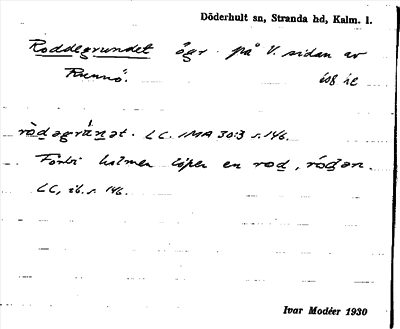 Döderhult sn, Stranda hd, Kalm. l.
Roddegrundet ögr. på V. sidan av
Runnö.
rò̀dəgrúnət. LC. IMA 30:3 s. 146.
Förbi holmen löper en rod, ródən.
LC, ib. s. 146.
Ivar Modéer 1930